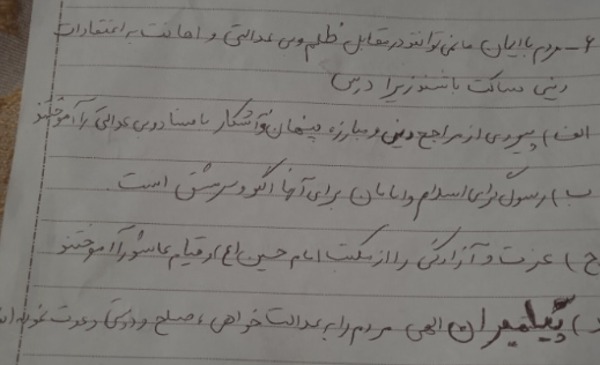 ۶- مردم با ایمان ما نمی توانند در مقابل ظلم و بی عدالتی و اهانت به اعتقادات
دینی ساکت باشند زیرا درس
الف) پیروی از مراجع دینی و مبارزه پنهان و آشکار با فساد و بی عدالتی را آموختند
ب) رسول گرامی اسلام و امامان برای آنها الگو و سرمشق است.
ج) عزت و آزادگی را از مکتب امام حسین (ع) و قیام عاشورا آموختند
د) پیامبران الهی مردم را به عدالت خواهی، صلح و دوستی دعوت نموده اند